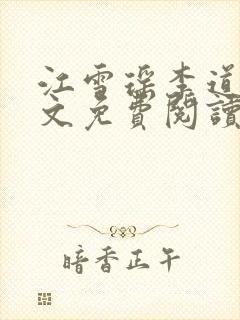 江雪瑶李道
文免費閱讀
暗香正午